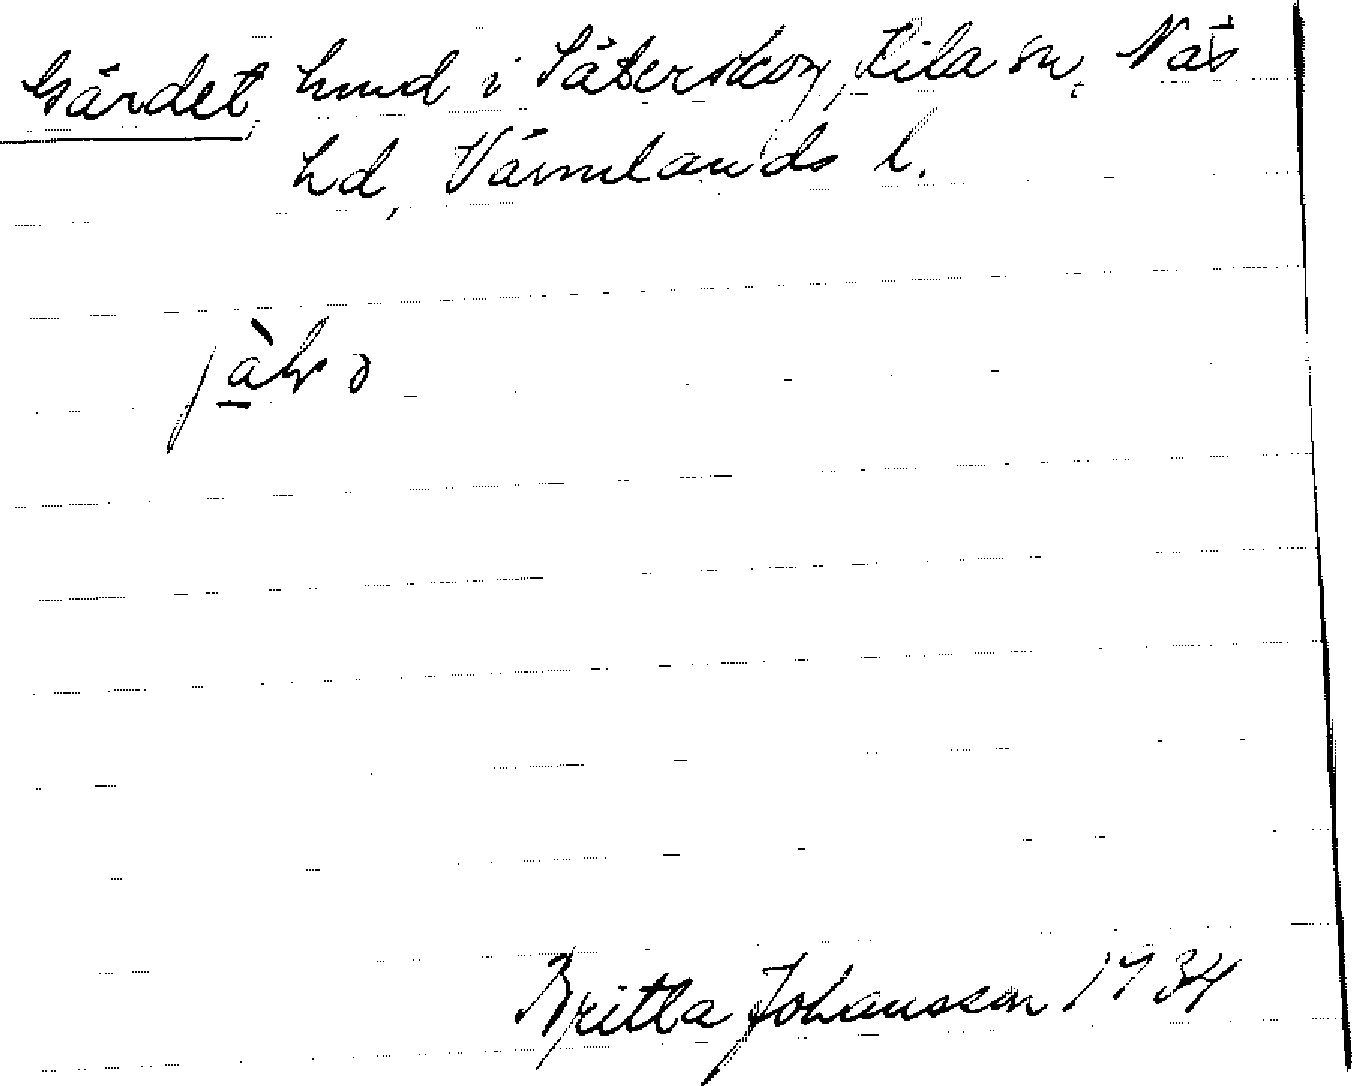 Gärdet, hmd i Säterskog, Kila sn, Näs
hd, Värmlands l.
Britta Johansson 1934